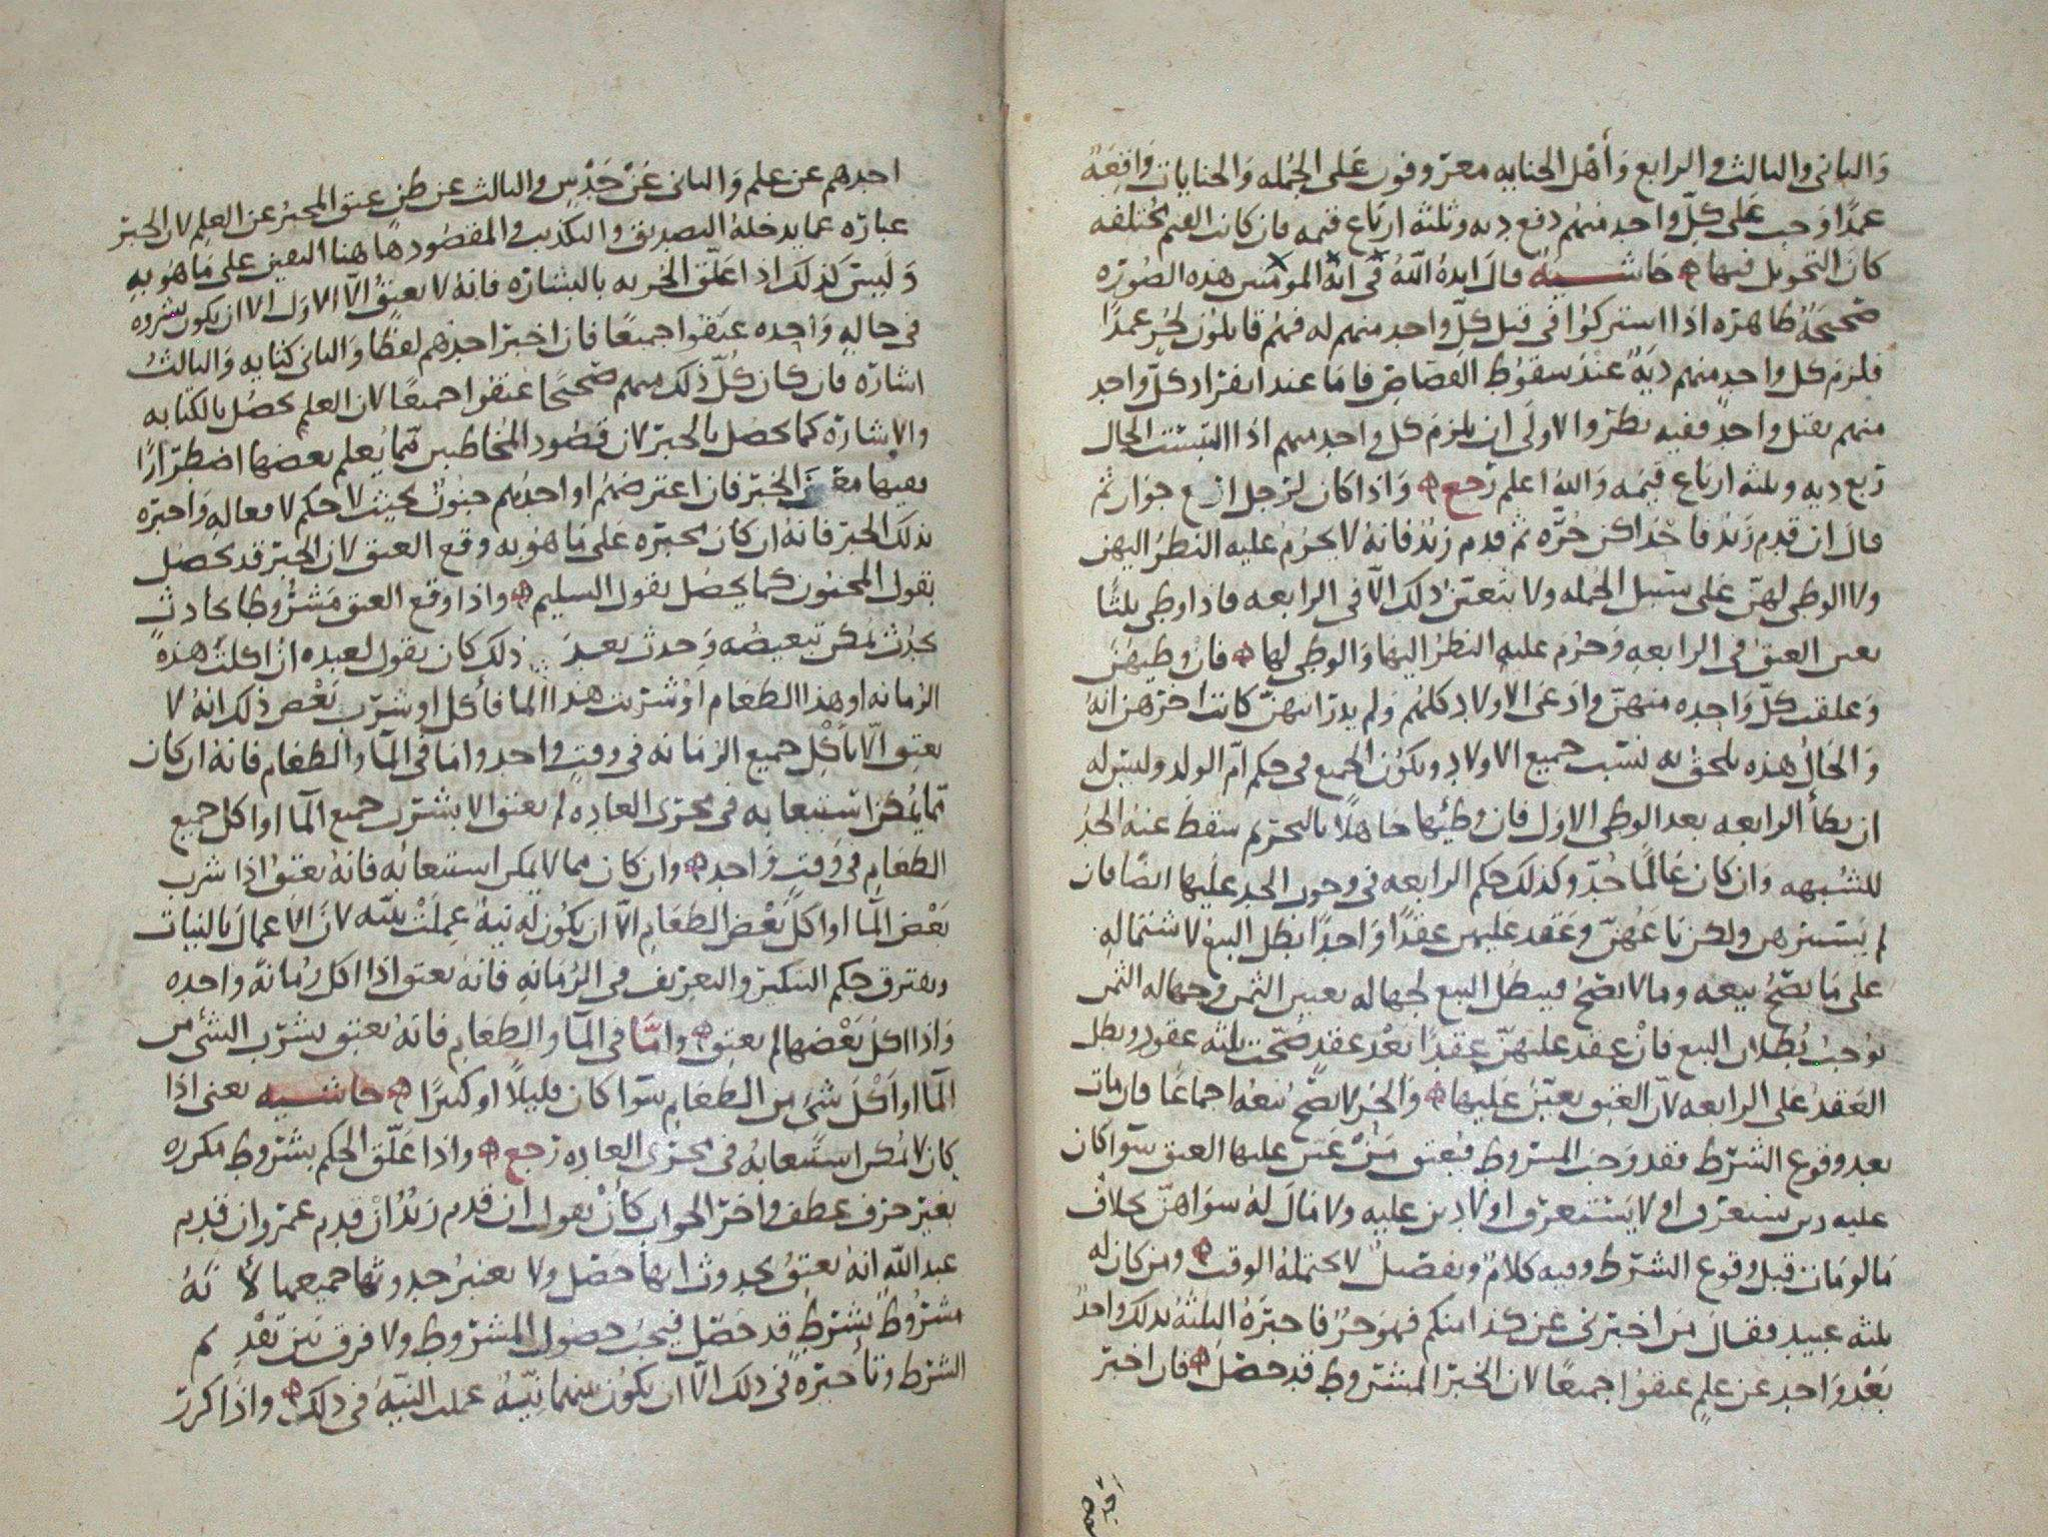 والثاني والثالث والرابع وأهل الجنايه معروفون على الجمله والجنايات واقعة
عمدا وجب على كل واحد منهم دفع ديه وثلثه ارباع قيمه فان كانت القيم مختلفه
كان التحويل فيها حاشيه قال ايده الله في المومنين هذه الصوره
صحيحة ظاهره اذا اشتركوا في قتل كل واحد منهم له فهم قاتلون لحر عمدا
فلزم كل واحد منهم دية عند سقوط القصاص فاما عند انفراد كل واحد
منهم بقتل واحد ففيه نظر والاولى ان يلزم كل واحد منهم اذا التبست الحال
ربع ديه وثلثه ارباع قيمه والله اعلم رجع واذا كان لرجل اربع جوار ثم
قال ان قدم زيد فاحداكن حره ثم قدم زيد فانه لا يحرم عليه النظر اليهن
ولا الوطي لهن على سبيل الجمله ولا يتعين ذلك الا في الرابعه فاذا وطي ثلثا
تعين العتق في الرابعه وحرم عليه النظر اليها والوطي لها فان وطيهن
وعلقت كل واحده منهن وادعى الاولاد كلهم ولم يدر ايتهن كانت اخرهن انه
والحال هذه يلحق به نسب جميع الاولاد ويكون الجميع في حكم ام الولد وليس له
ان يطأ الرابعه بعد الوطي الاول فان وطئها جاهلا بالتحريم سقط عنه الحد
للشبهه وان كان عالما حد وكذلك حكم الرابعه في وجوب الحد عليها ايضا فان
لم يستسرهن ولكن باعهن وعقد عليهن عقدا واحدا بطل البيع لاشتماله
على ما يصح بيعه وما لا يصح فيبطل البيع لجهاله تعيين الثمن وجهاله الثمن
توجب بطلان البيع فان عقد عليهن عقدا بعد عقد صحت ثلثه عقود وبطل
العقد على الرابعه لان العتق تعين عليها والحر لا يصح بيعه اجماعا فان مات
بعد وقوع الشرط فقد وجب المشروط فيعتق من عين عليها العتق سوا كان
عليه دين يستغرق او لا يستغرق او لا دين عليه ولا مال له سواهن بخلاف
ما لو مات قبل وقوع الشرط وفيه كلام وتفصيل لا يحتمله الوقت ومن كان له
ثلثه عبيد فقال من اخبرني عن كذا منكم فهو حر فاخبره الثلثه بذلك واحد
بعد واحد عن علم عتقوا جميعا لان الخبر المشروط قد حصل فان اخبر
احدهم عن علم والثاني عن حدس والثالث عن ظن عتق المخبر عن العلم لان الخبر
عباره عما يدخله التصديق والتكذيب والمقصود هاهنا التعين على ما هو به
وليس كذلك اذا علق الحريه بالبشاره فانه لا يعتق الا الاول الا ان يكون بشروه
في حاله واحده عتقوا جميعا فان اخبر احدهم لفظا والثاني كتابه والثالث
اشاره فان كان كل ذلك منهم صحيحا عتقوا جميعا لان العلم يحصل بالكتابه
والاشاره كما يحصل بالخبر لان قصود المخاطبين مما يعلم بعضها اضطرارا
فيها الخبر فان اعترضهم او احدهم جنون بحيث لا حكم لافعاله واخبره
بذلك الخبر فانه ان كان مخبره على ما هو به وقع العتق لان الخبر قد يحصل
بقول المجنون كما يحصل بقول السليم واذا وقع العتق مشروطا بحادث
يحدث يمكن تبعيضه وحدث بعد ذلك كان يقول لعبده ان اكلت هذه
الرمانه او هذا الطعام او شربت هذا الما فأكل او شرب بعض ذلك انه لا
يعتق الا باكل جميع الرمانه في وقت واحد واما في الما والطعام فانه ان كان
مما يمكن استيعابه في مجرى العاده لم يعتق الا بشرب جميع الما او اكل جميع
الطعام في وقت واحد وان كان مما لا يمكن استيعابه فانه يعتق اذا شرب
بعض الما او اكل بعض الطعام الا ان يكون له نية عملت نيته لان الاعمال بالنيات
ويفترق حكم التنكير والتعريف في الرمانه فانه يعتق اذا اكل رمانة واحده
واذا اكل بعضها لم يعتق واما في الما والطعام فانه يعتق بشرب الشئ من
الما او اكل شئ من الطعام سوا كان قليلا او كثيرا حاشيه يعني اذا
كان لا يمكن استيعابه في مجرى العاده رجع واذا علق الحكم بشروط مكرره
بغير حرف عطف واخر الجواب كأن يقول ان قدم زيد ان قدم عمر وان قدم
عبد الله انه يعتق بحدوث ايها حصل ولا يعتبر حدوثها جميعها لأنه
مشروط بشرط قد حصل فيجب حصول المشروط ولا فرق بين تقديم
الشرط وتأخيره في ذلك الا ان يكون بينهما نية عملت النية في ذلك واذا كرر